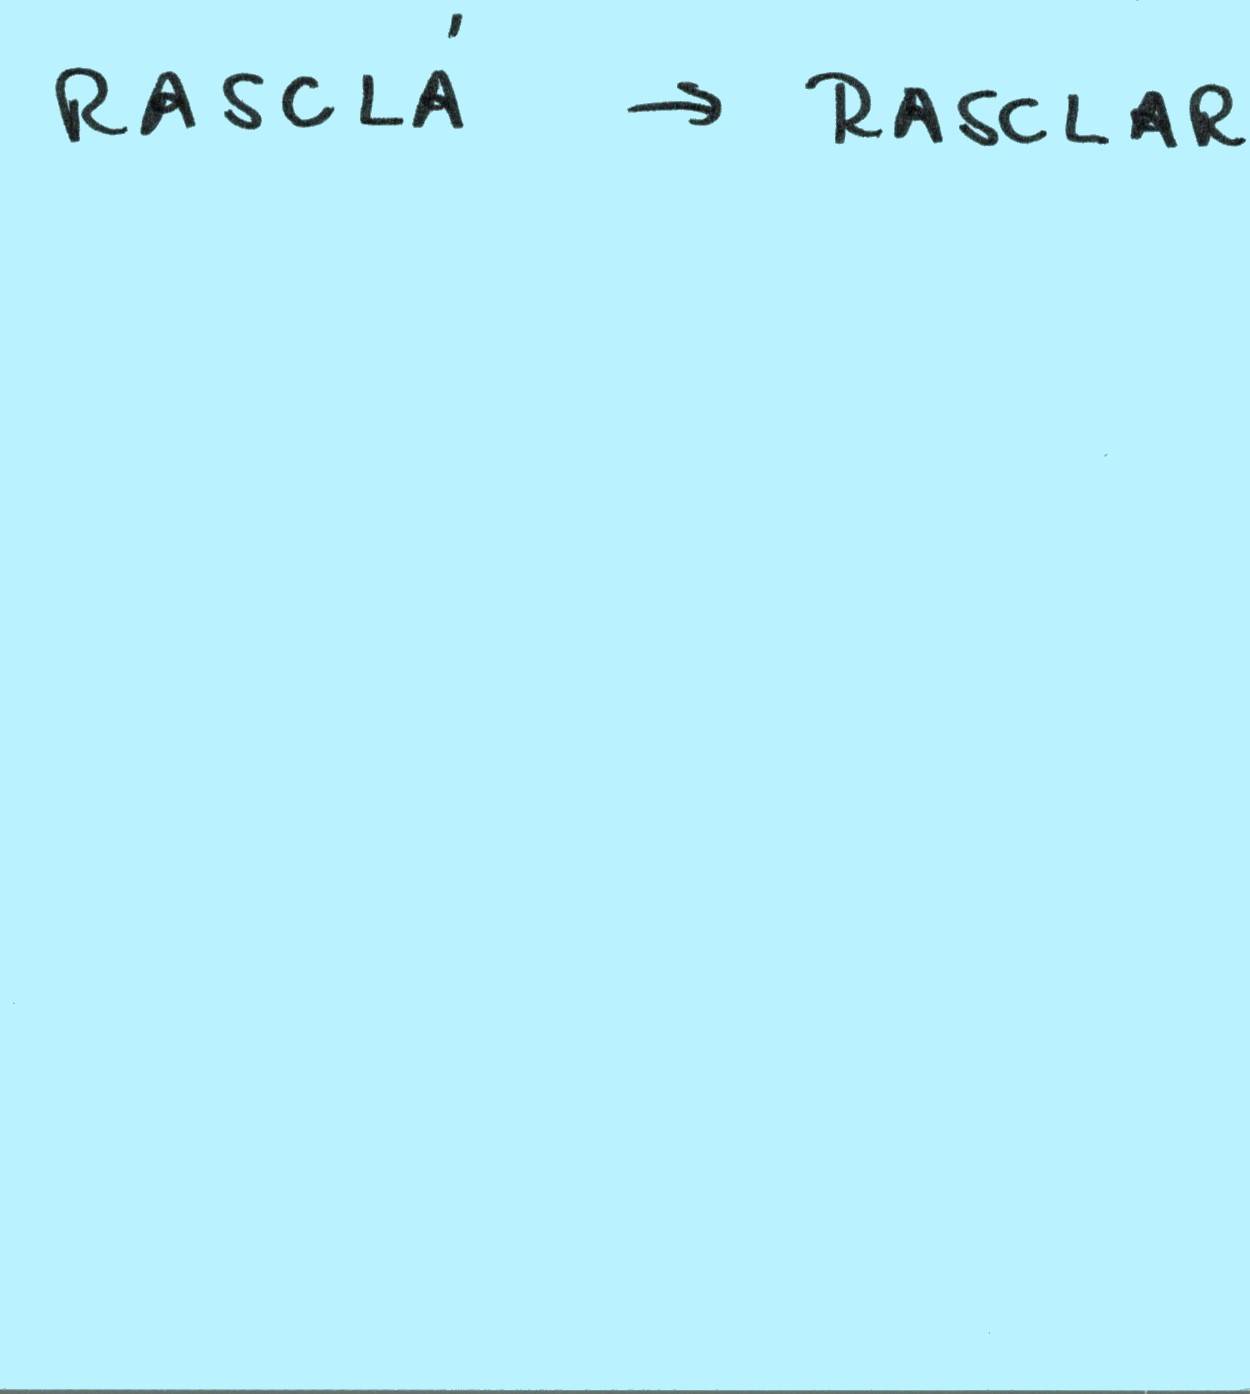 RASCLÁ → RASCLAR